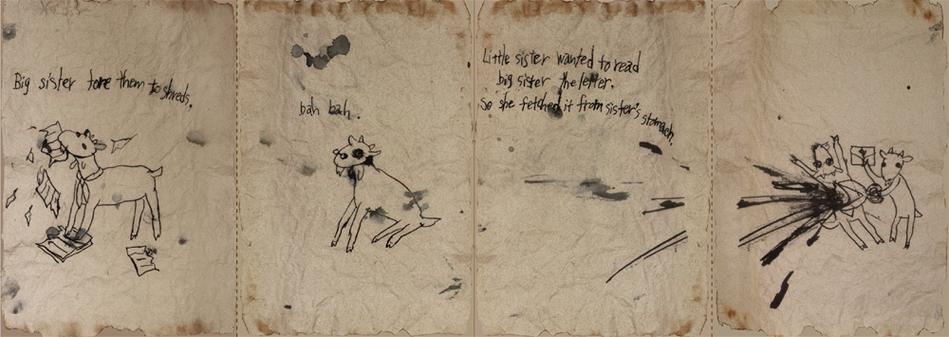 Big sister tore them to shreds.
bah bah.
Little sister wanted to read
big sister the letter.
So she fetched it from sister's stomach.